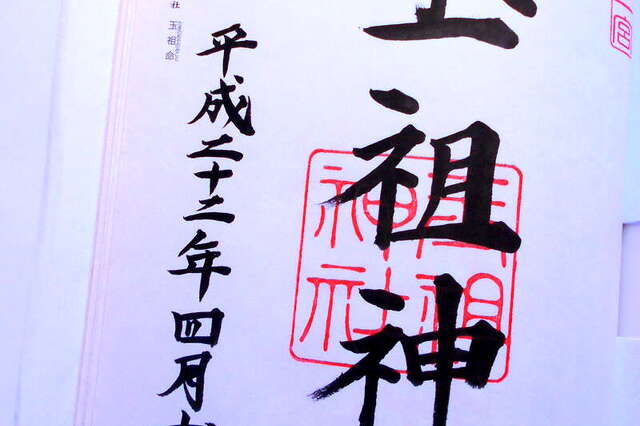 玉祖神
玉祖神社
平成二十二年四月
社 玉祖命